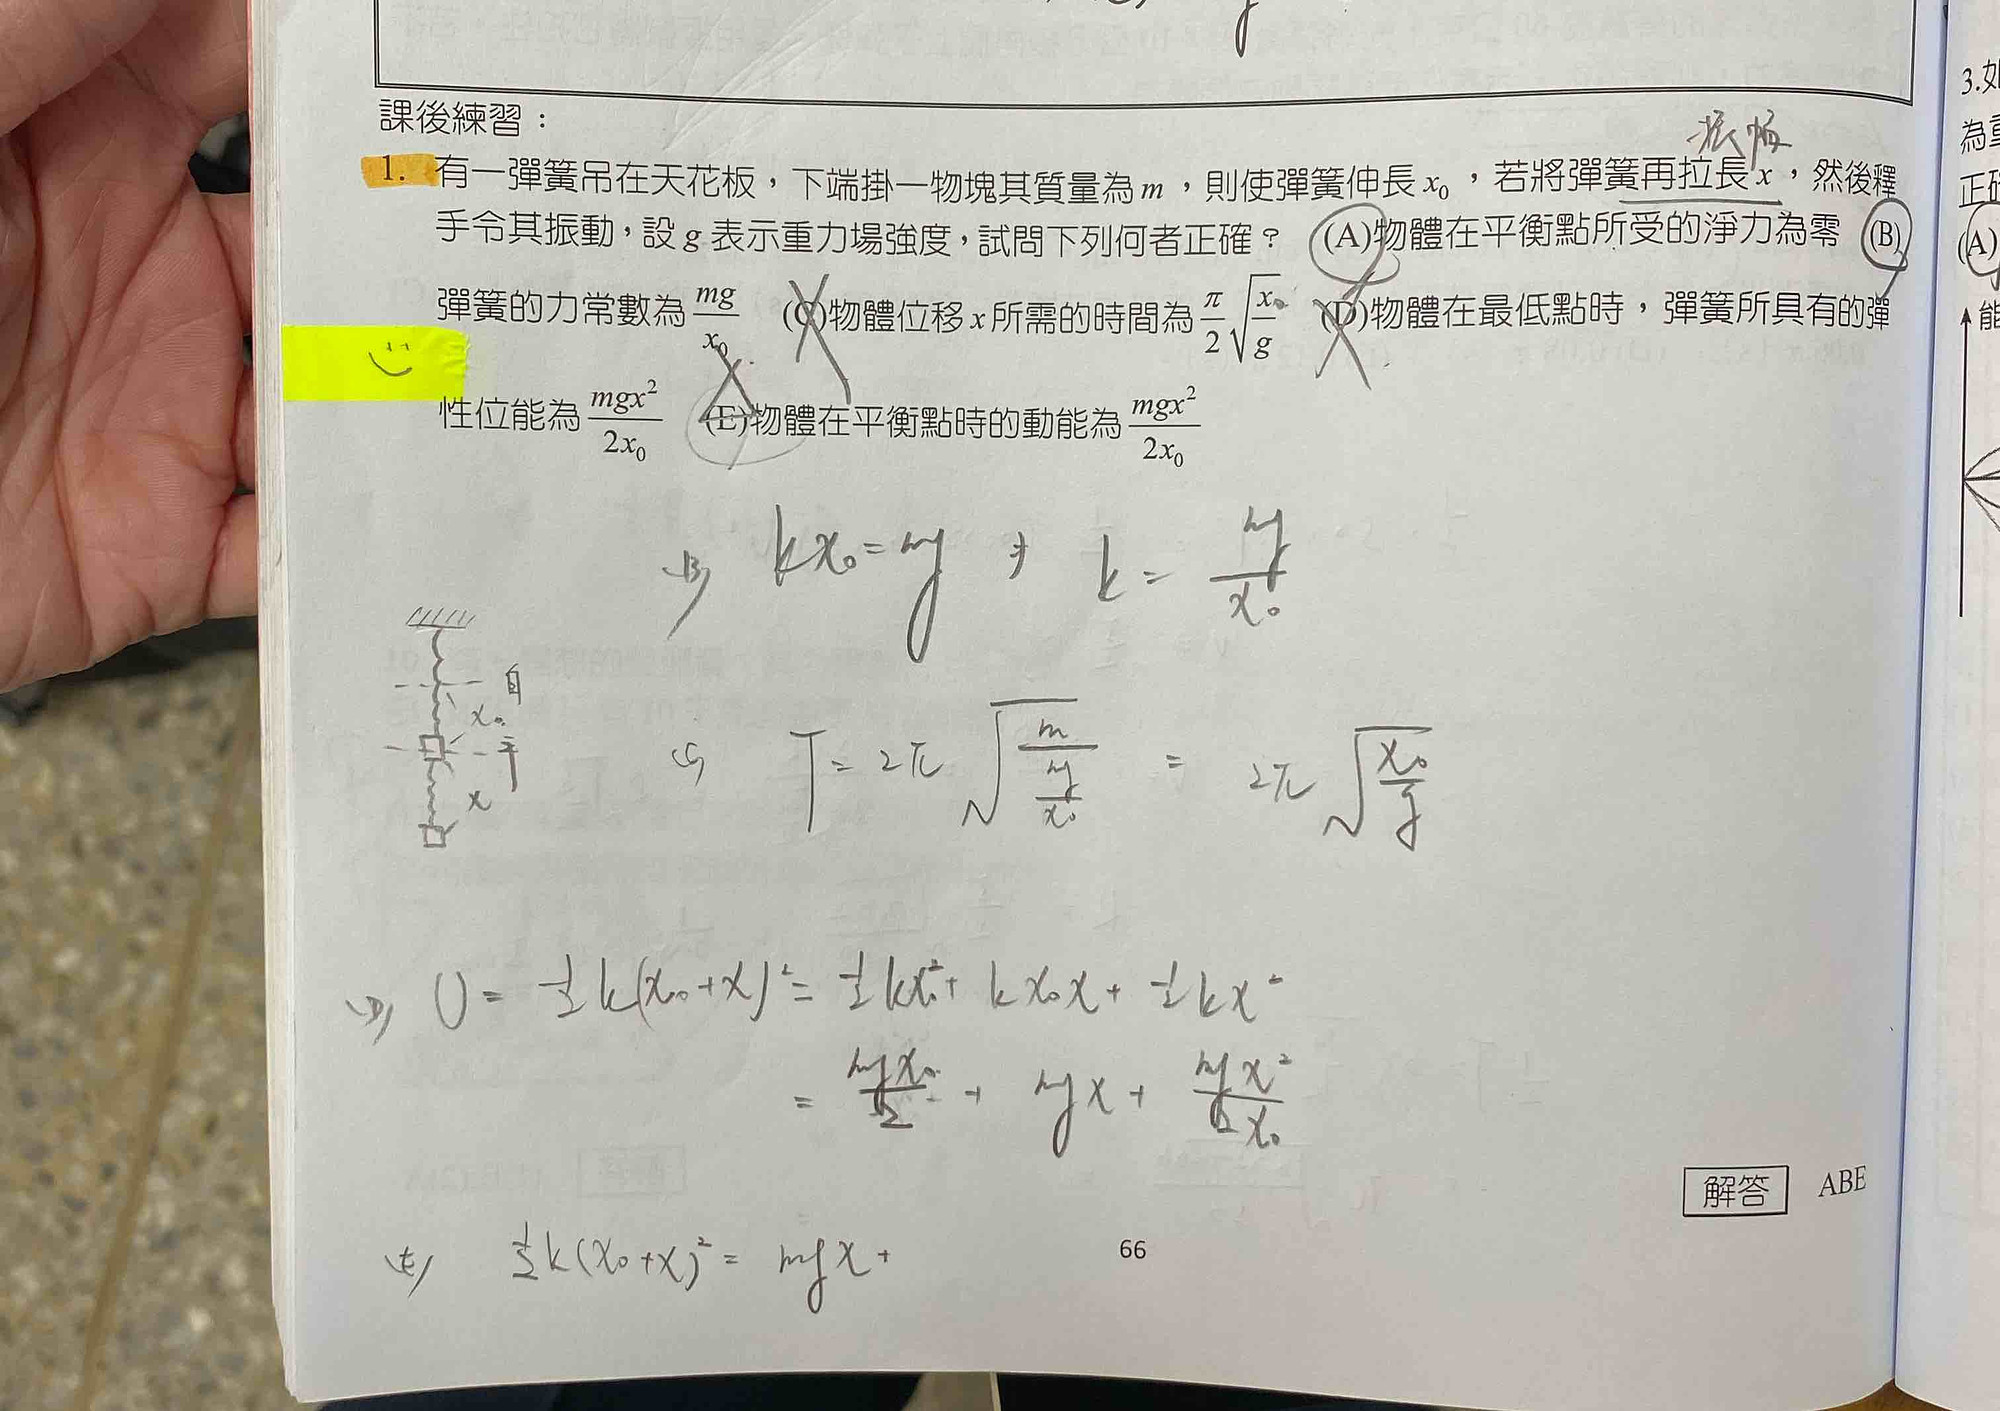 課後練習：
振幅
1. 有一彈簧吊在天花板，下端掛一物塊其質量為 m，則使彈簧伸長 x₀，若將彈簧再拉長 x，然後釋
手令其振動，設 g 表示重力場強度，試問下列何者正確？ (A)物體在平衡點所受的淨力為零 (B)
彈簧的力常數為 mg/x₀ (C)物體位移 x 所需的時間為 π/2 √(x₀/g) (D)物體在最低點時，彈簧所具有的彈
性位能為 mgx²/2x₀ (E)物體在平衡點時的動能為 mgx²/2x₀
(B) kx₀ = mg ⇒ k = mg/x₀
自
x₀
平
x
(C) T = 2π √(m/(mg/x₀)) = 2π √(x₀/g)
(D) U = ½k(x₀+x)² = ½kx₀² + kx₀x + ½kx²
= mgx₀/2 + mgx + mgx²/2x₀
解答 ABE
(E) ½k(x₀+x)² = mgx +
66
3.如
為重
正確
(A)
能